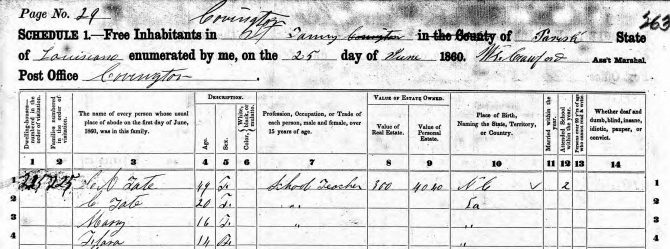 Page No. 29
Covington
363
SCHEDULE 1.—Free Inhabitants in St Tamny Covington in the County of Parish State
of Louisiana enumerated by me, on the 25 day of June 1860. Crawford Ass't Marshal.
Post Office Covington
Dwelling-houses—numbered in the order of visitation.
Families numbered in the order of visitation.
The name of every person whose usual place of abode on the first day of June, 1860, was in this family.
DESCRIPTION.
Age.
Sex.
Color,
Profession, Occupation, or Trade of each person, male and female, over 15 years of age.
VALUE OF ESTATE OWNED.
Value of Real Estate.
Value of Personal Estate.
Place of Birth, Naming the State, Territory, or Country.
Married within the year.
Attended School within the year.
Whether deaf and dumb, blind, insane, idiotic, pauper, or convict.
1 2 3 4 5 6 7 8 9 10 11 12 13 14
1 225 225 Tate 49 F. School Teacher 300 4040 N C 2 1
2 C Tate 20 F. " La 2
3 Mary 16 F. " " 3
4 14 " 4